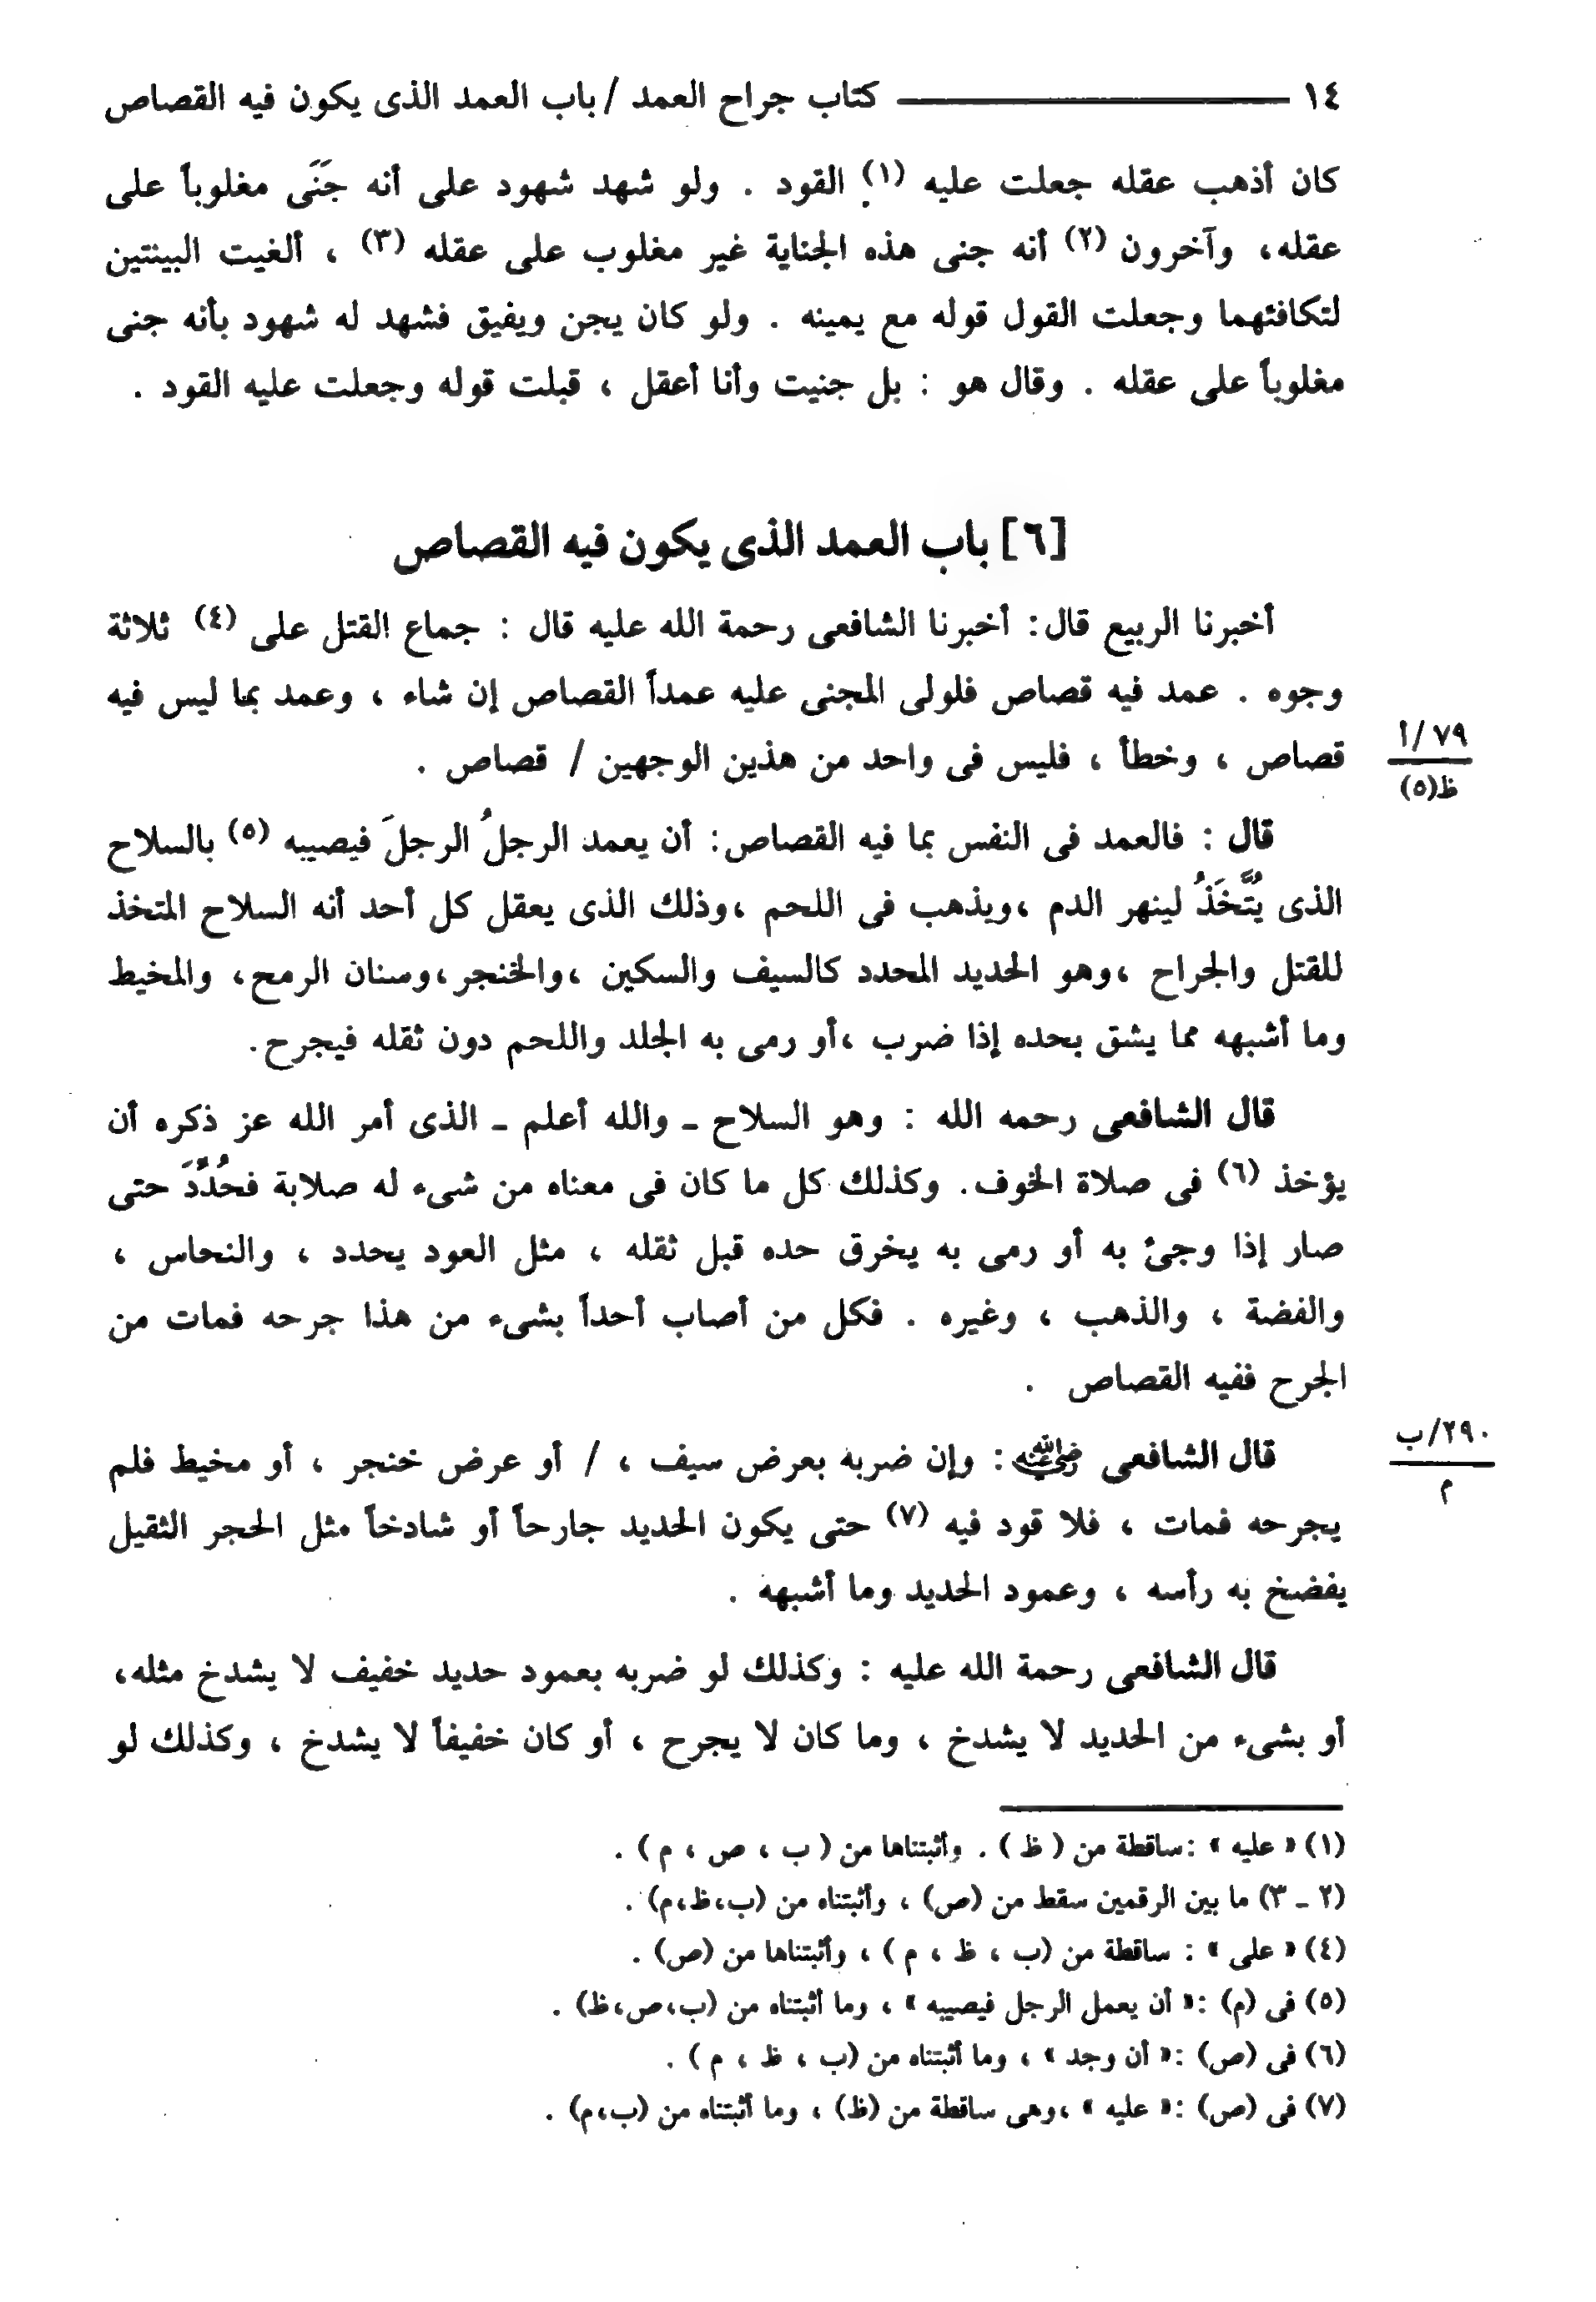 ١٤ ــــــــ كتاب جراح العمد / باب العمد الذى يكون فيه القصاص
كان أذهب عقله جعلت عليه (١) القود . ولو شهد شهود على أنه جَنَى مغلوباً على
عقله، وآخرون (٢) أنه جنى هذه الجناية غير مغلوب على عقله (٣) ، ألغيت البينتين
لتكافئهما وجعلت القول قوله مع يمينه . ولو كان يجن ويفيق فشهد له شهود بأنه جنى
مغلوباً على عقله . وقال هو : بل جنيت وأنا أعقل ، قبلت قوله وجعلت عليه القود .
[٦] باب العمد الذى يكون فيه القصاص
أخبرنا الربيع قال: أخبرنا الشافعى رحمة الله عليه قال : جماع القتل على (٤) ثلاثة
وجوه . عمد فيه قصاص فلولى المجنى عليه عمداً القصاص إن شاء ، وعمد بما ليس فيه
قصاص ، وخطأ ، فليس فى واحد من هذين الوجهين / قصاص .
٧٩/أ
ظ(٥)
قال : فالعمد فى النفس بما فيه القصاص: أن يعمد الرجلُ الرجلَ فيصيبه (٥) بالسلاح
الذى يُتَّخَذُ لينهر الدم ،ويذهب فى اللحم ،وذلك الذى يعقل كل أحد أنه السلاح المتخذ
للقتل والجراح ،وهو الحديد المحدد كالسيف والسكين ،والخنجر،وسنان الرمح، والمخيط
وما أشبهه مما يشق بحده إذا ضرب ،أو رمى به الجلد واللحم دون ثقله فيجرح.
قال الشافعى رحمه الله : وهو السلاح ـ والله أعلم ـ الذى أمر الله عز ذكره أن
يؤخذ (٦) فى صلاة الخوف. وكذلك كل ما كان فى معناه من شىء له صلابة فحُدِّدَ حتى
صار إذا وجئ به أو رمى به يخرق حده قبل ثقله ، مثل العود يحدد ، والنحاس ،
والفضة ، والذهب ، وغيره . فكل من أصاب أحداً بشىء من هذا جرحه فمات من
الجرح ففيه القصاص .
قال الشافعى رضي الله عنه : وإن ضربه بعرض سيف ، / أو عرض خنجر ، أو مخيط فلم
٢٩٠/ب
م
يجرحه فمات ، فلا قود فيه (٧) حتى يكون الحديد جارحاً أو شادخاً مثل الحجر الثقيل
يفضخ به رأسه ، وعمود الحديد وما أشبهه .
قال الشافعى رحمة الله عليه : وكذلك لو ضربه بعمود حديد خفيف لا يشدخ مثله،
أو بشىء من الحديد لا يشدخ ، وما كان لا يجرح ، أو كان خفيفاً لا يشدخ ، وكذلك لو
(١) « عليه » :ساقطة من ( ظ ) . وأثبتناها من ( ب ، ص ، م ) .
(٢ ـ ٣) ما بين الرقمين سقط من (ص) ، وأثبتناه من (ب،ظ،م) .
(٤) « على » : ساقطة من (ب ، ظ ، م ) ، وأثبتناها من (ص) .
(٥) فى (م) :« أن يعمل الرجل فيصيبه » ، وما أثبتناه من (ب،ص،ظ) .
(٦) فى (ص) :« أن وجد » ، وما أثبتناه من (ب ، ظ ، م ) .
(٧) فى (ص) :« عليه » ،وهى ساقطة من (ظ) ، وما أثبتناه من (ب،م) .